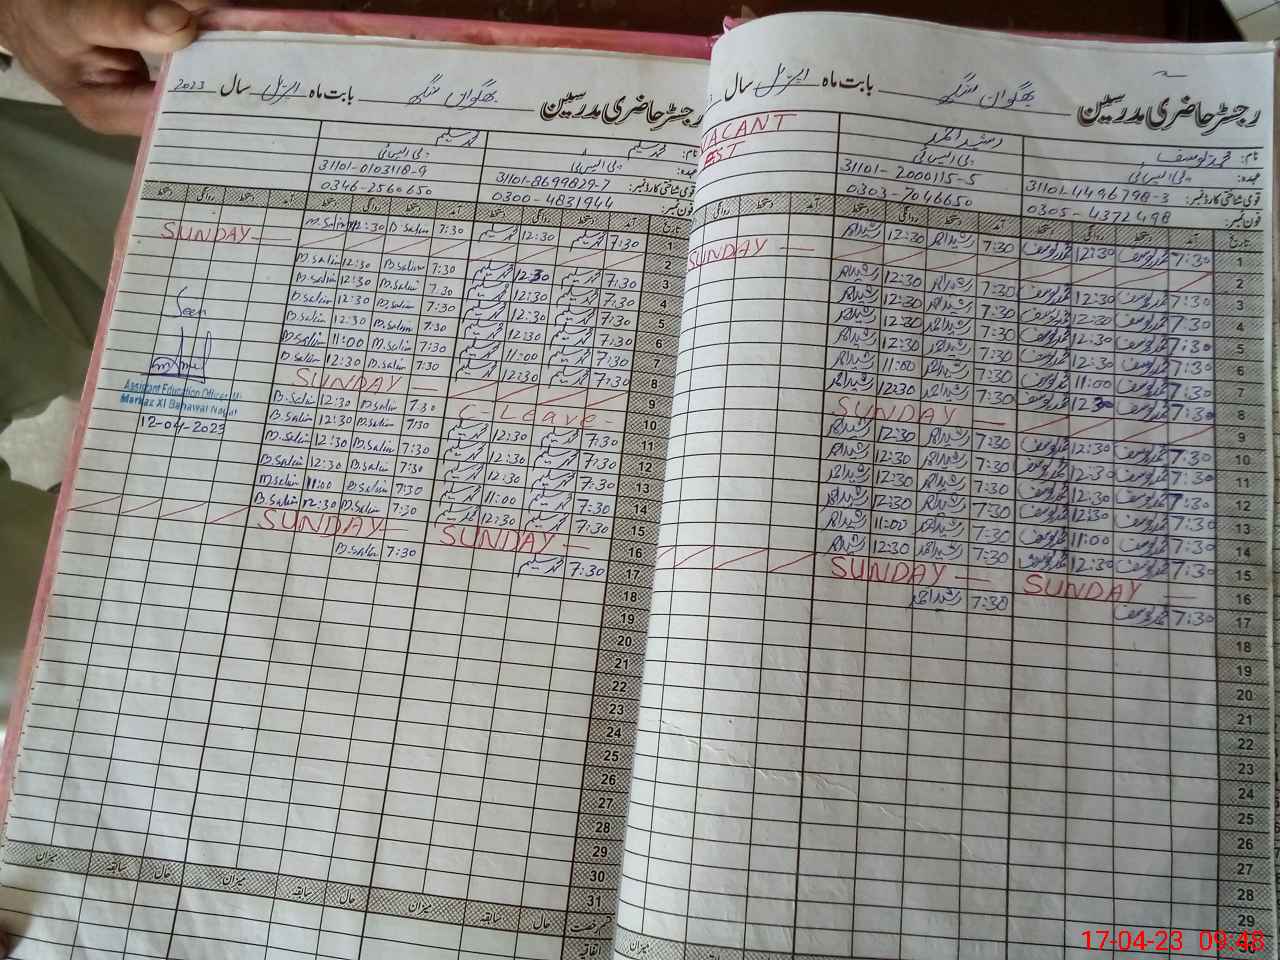 رجسٹر حاضری مدرسین بھگواں سنگھ بابت ماہ اپریل سال
نام: محمد یوسف رشید احمد VACANT
عہدہ: پی ایس ٹی پی ایس ٹی PST
قومی شناختی کارڈ نمبر: 31101-4496798-3 31101-2000115-5
فون نمبر: 0305-4372498 0303-7046650
تاریخ آمد دستخط روانگی دستخط آمد دستخط روانگی دستخط
1 7:30 محمد یوسف 12:30 محمد یوسف 7:30 رشید احمد 12:30 رشید احمد
2 SUNDAY
3 7:30 محمد یوسف 12:30 محمد یوسف 7:30 رشید احمد 12:30 رشید احمد
4 7:30 محمد یوسف 12:30 محمد یوسف 7:30 رشید احمد 12:30 رشید احمد
5 7:30 محمد یوسف 12:30 محمد یوسف 7:30 رشید احمد 12:30 رشید احمد
6 7:30 محمد یوسف 12:30 محمد یوسف 7:30 رشید احمد 12:30 رشید احمد
7 7:30 محمد یوسف 11:00 محمد یوسف 7:30 رشید احمد 11:00 رشید احمد
8 7:30 محمد یوسف 12:30 محمد یوسف 7:30 رشید احمد 12:30 رشید احمد
9 SUNDAY
10 7:30 محمد یوسف 12:30 محمد یوسف 7:30 رشید احمد 12:30 رشید احمد
11 7:30 محمد یوسف 12:30 محمد یوسف 7:30 رشید احمد 12:30 رشید احمد
12 7:30 محمد یوسف 12:30 محمد یوسف 7:30 رشید احمد 12:30 رشید احمد
13 7:30 محمد یوسف 12:30 محمد یوسف 7:30 رشید احمد 12:30 رشید احمد
14 7:30 محمد یوسف 11:00 محمد یوسف 7:30 رشید احمد 11:00 رشید احمد
15 7:30 محمد یوسف 12:30 محمد یوسف 7:30 رشید احمد 12:30 رشید احمد
16 SUNDAY SUNDAY
17 7:30 محمد یوسف 7:30 رشید احمد
18
19
20
21
22
23
24
25
26
27
28
29
30
میزان
رجسٹر حاضری مدرسین بھگواں سنگھ بابت ماہ اپریل سال 2023
نام: محمد سلیم محمد سلیم
عہدہ: پی ایس ٹی پی ایس ٹی
قومی شناختی کارڈ نمبر: 31101-8699829-7 31101-0103118-9
فون نمبر: 0300-4831944 0346-2560650
تاریخ آمد دستخط روانگی دستخط آمد دستخط روانگی دستخط آمد دستخط روانگی دستخط
1 7:30 محمد سلیم 12:30 محمد سلیم 7:30 M.Salim 12:30 M.Salim
2 SUNDAY
3 7:30 محمد سلیم 12:30 محمد سلیم 7:30 M.Salim 12:30 M.Salim
4 7:30 محمد سلیم 12:30 محمد سلیم 7:30 M.Salim 12:30 M.Salim
5 7:30 محمد سلیم 12:30 محمد سلیم 7:30 M.Salim 12:30 M.Salim
6 7:30 محمد سلیم 12:30 محمد سلیم 7:30 M.Salim 12:30 M.Salim
7 7:30 محمد سلیم 11:00 محمد سلیم 7:30 M.Salim 11:00 M.Salim
8 7:30 محمد سلیم 12:30 محمد سلیم 7:30 M.Salim 12:30 M.Salim
9 SUNDAY
10 C-Leave 7:30 M.Salim 12:30 M.Salim
11 7:30 محمد سلیم 12:30 محمد سلیم 7:30 M.Salim 12:30 M.Salim
12 7:30 محمد سلیم 12:30 محمد سلیم 7:30 M.Salim 12:30 M.Salim
13 7:30 محمد سلیم 12:30 محمد سلیم 7:30 M.Salim 12:30 M.Salim
14 7:30 محمد سلیم 11:00 محمد سلیم 7:30 M.Salim 11:00 M.Salim
15 7:30 محمد سلیم 12:30 محمد سلیم 7:30 M.Salim 12:30 M.Salim
16 SUNDAY SUNDAY
17 7:30 محمد سلیم 7:30 M.Salim
18
19
20
21
22
23
24
25
26
27
28
29
30
31
Seen
Assistant Education Officer
Markaz XI Bahawal Nagar
12-04-2023
رخصت حال سابقہ میزان حال سابقہ میزان حال سابقہ میزان
اتفاقیہ
17-04-23 09:48